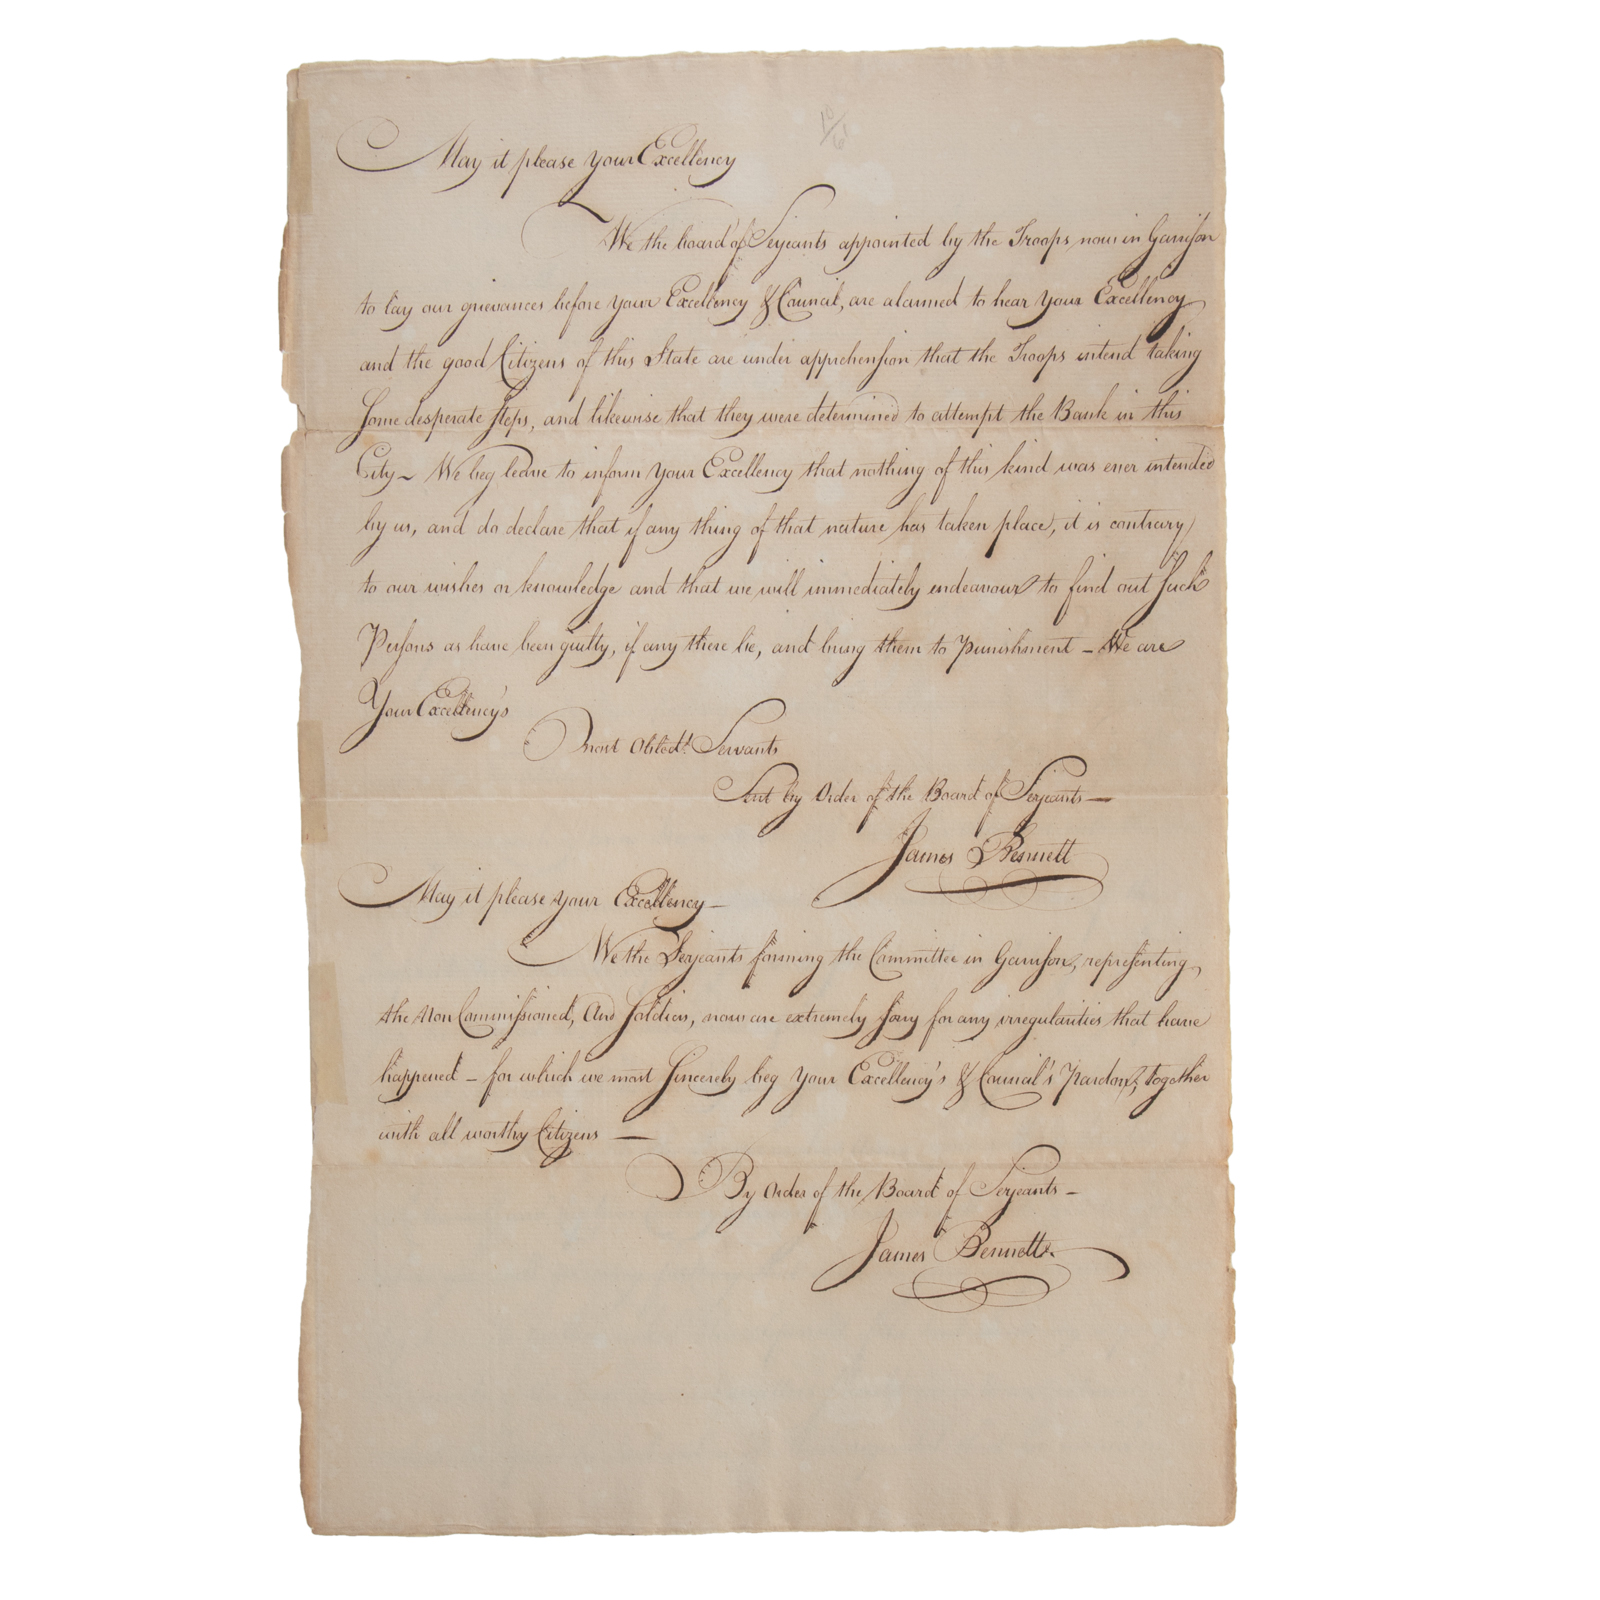 10/61
May it please your Excellency
We the board of Serjeants appointed by the Troops now in Garrison
to lay our grievances before your Excellency & Council, are alarmed to hear your Excellency
and the good Citizens of this State are under apprehension that the Troops intend taking
Some desperate steps, and likewise that they were determined to attempt the Bank in this
City ~ We beg leave to inform your Excellency that nothing of this kind was ever intended
by us, and do declare that if any thing of that nature has taken place, it is contrary
to our wishes or knowledge and that we will immediately endeavour to find out such
Persons as have been guilty, if any there be, and bring them to Punishment – We are
Your Excellency's
most Obted.t Servants
Sent by Order of the Board of Serjeants —
James Bennett
May it please your Excellency –
We the Serjeants forming the Committee in Garrison, representing
the Non Commissioned, And Soldiers, now are extremely sorry for any irregularities that have
happened – for which we most Sincerely beg your Excellency's & Council's Pardon, together
with all worthy Citizens —
By Order of the Board of Serjeants –
James Bennett